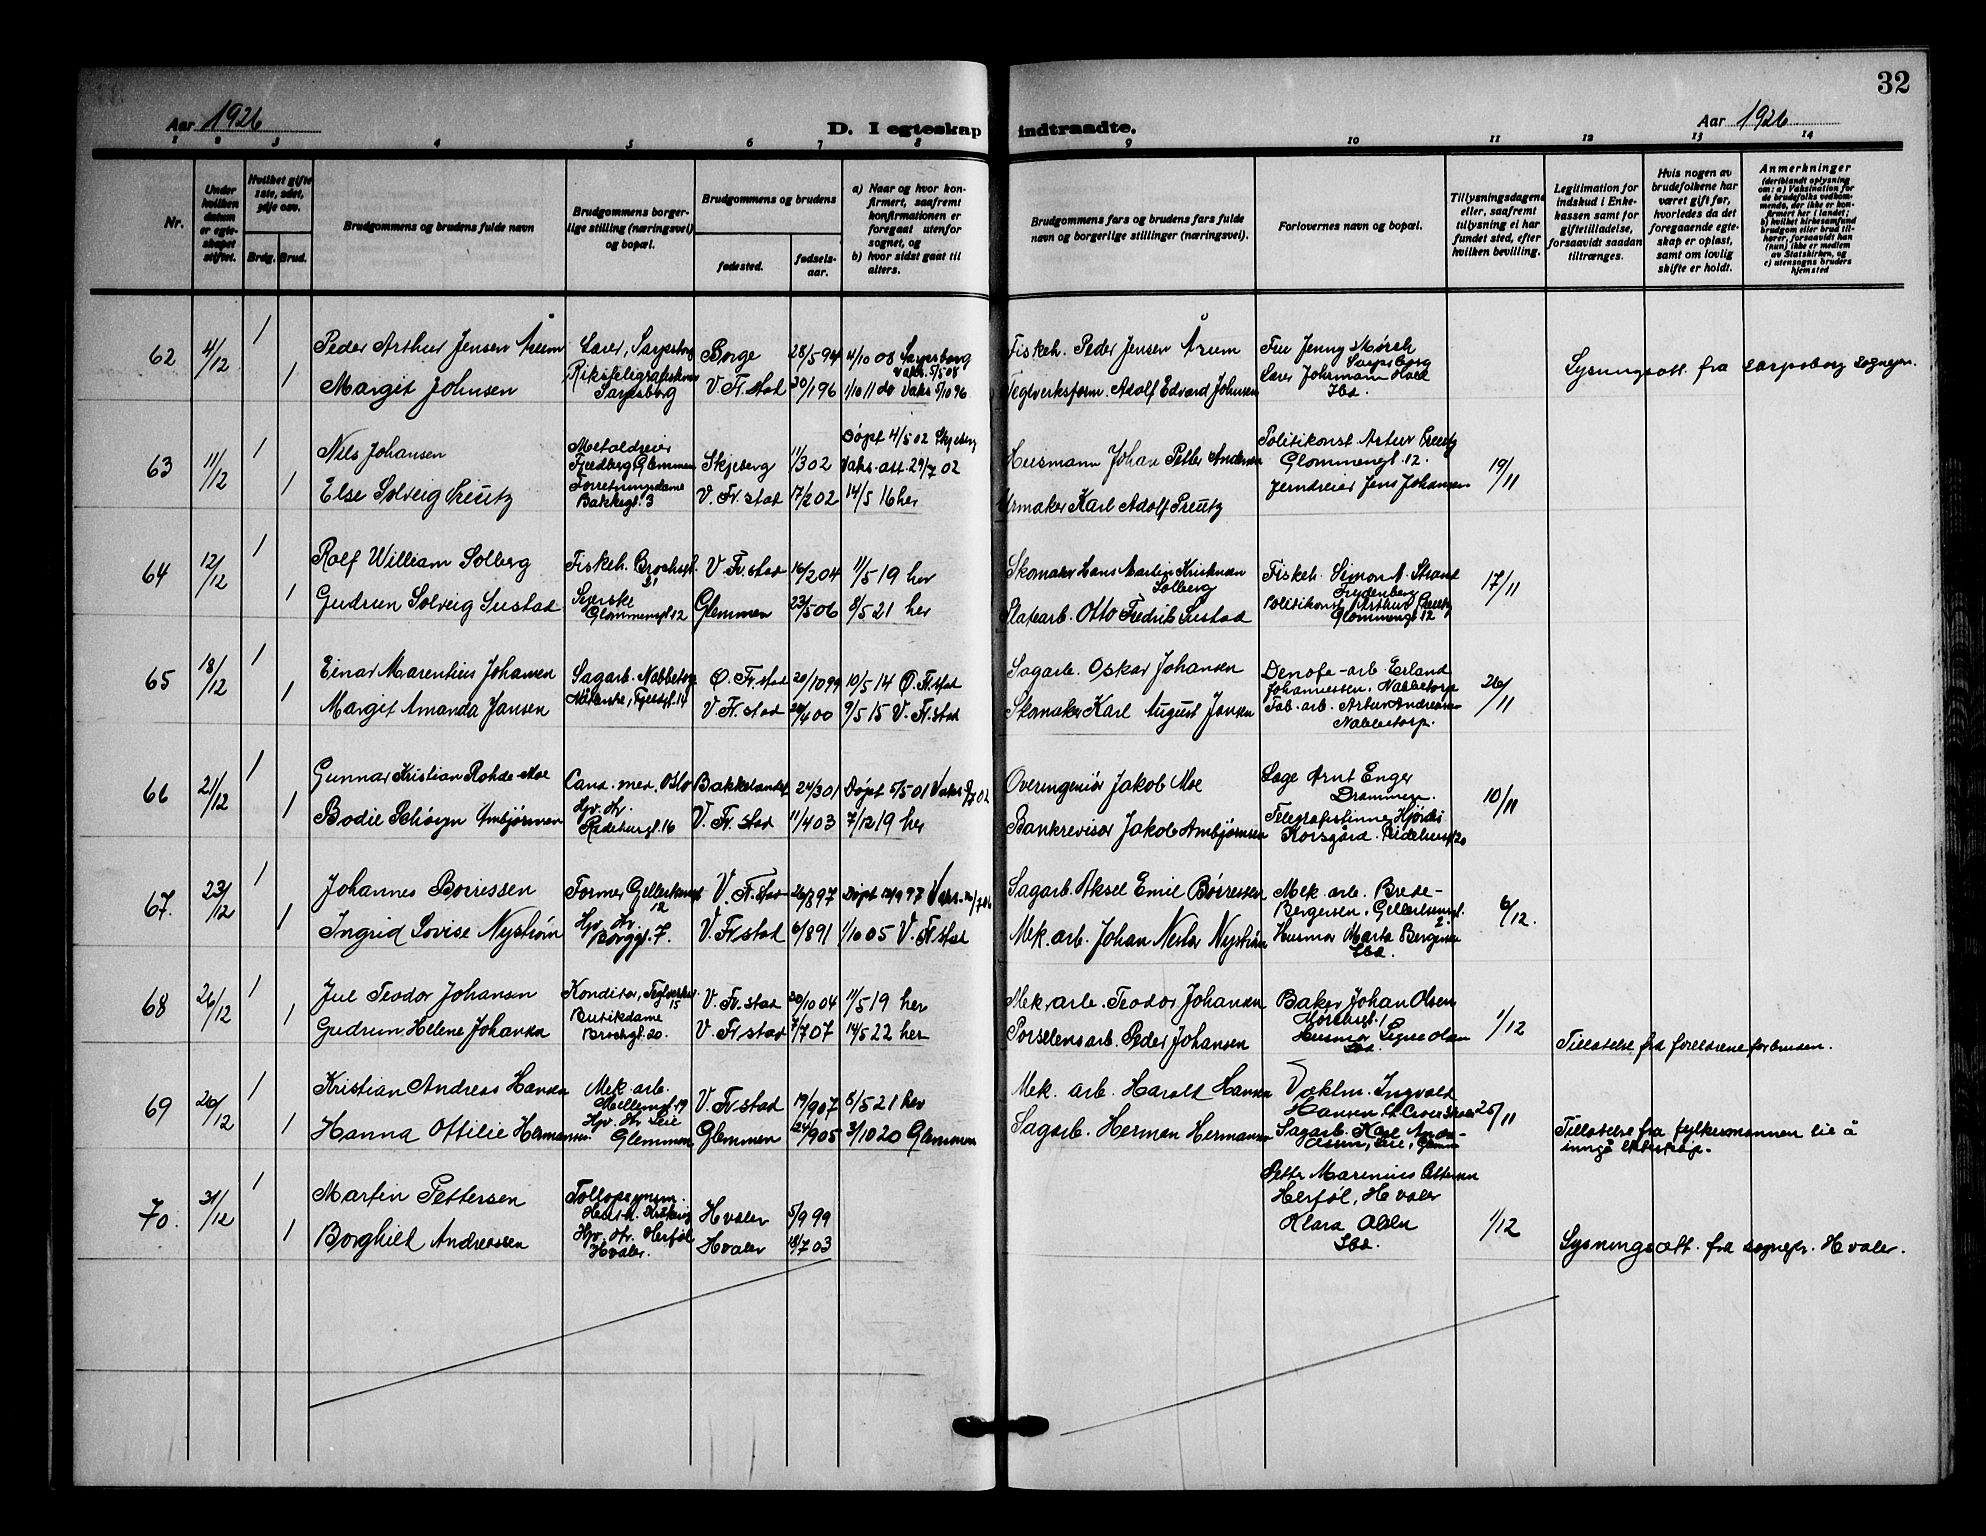 32
Aar 1926
D. I egteskap indtraadte.
Aar 1926
1 2 3 4 5 6 7 8 9 10 11 12 13 14
Nr.
Under hvilken datum er egteskapet stiftet.
Hvilket gifte 1ste, 2det, 3dje osv.
Brdg. Brud.
Brudgommens og brudens fulde navn
Brudgommens borgerlige stilling (næringsvei) og bopæl.
Brudgommens og brudens
fødested.
fødselsaar.
a) Naar og hvor konfirmert, saafremt konfirmationen er foregaat utenfor sognet, og
b) hvor sidst gaat til alters.
Brudgommens fars og brudens fars fulde navn og borgerlige stillinger (næringsvei).
Forlovernes navn og bopæl.
Tillysningsdagene eller, saafremt tillysning ei har fundet sted, efter hvilken bevilling.
Legitimation for indskud i Enkekassen samt for giftetilladelse, forsaavidt saadan tiltrænges.
Hvis nogen av brudefolkene har været gift før, hvorledes da det foregaaende egteskap er opløst, samt om lovlig skifte er holdt.
Anmerkninger
(deriblandt oplysning om: a) Vaksination for de brudefolks vedkommende, der ikke er konfirmert her i landet; b) hvilket kirkesamfund brudgom eller brud tilhører, forsaavidt han (hun) ikke er medlem av Statskirken, og c) utensogns bruders hjemsted
62 4/12 1 Peder Arthur Jensen Årum Lærer, Sarpsborg Borge 28/5 94 4/10 08 Sarpsborg Vaks. 5/5 08 Fiskeh. Peder Jensen Årum Fru Jenny Mørch Sarpsborg
1 Margit Johnsen Rikstelegrafistinne Sarpsborg V. Fr.stad 20/1 96 1/10 11 do Vaks 5/10 96 Teglverksform. Adolf Edvard Johnsen Lærer Johsmann Hoel Ibd. Lysningsatt. fra Sarpsborg sognepr.
63 11/12 1 Nils Johansen Metaldreier Fjeldberg Glemmen Skjeberg 11/3 02 Døpt 4/5 02 Skjeberg Vaks. att. 29/7 02 Husmann Johan Petter Andersen Politikonst Artur Creutz Glommengt. 12. 19/11
1 Else Solveig Creutz Forretningsdame Bakkegt. 3 V. Fr. stad 17/2 02 14/5 16 her Urmaker Karl Adolf Creutz Jerndreier Jens Johansen
64 12/12 1 Rolf William Solberg Fiskeh. Brochsgt. 31 V. Fr. stad 16/2 04 11/5 19 her Skomaker Hans Martin Kristensen Solberg Fiskeh. Simon A. Strand Trudenberg 17/11
1 Gudrun Solveig Sustad Syerske Glommengt. 12 Glemmen 23/5 06 8/5 21 her Platearb. Otto Fredrik Sustad Politikonst. Arthur Creutz Glommengt 12
65 18/12 1 Einar Marentius Johansen Sagarb. Nabbetorp Ø. Fr. stad 20/10 99 10/5 14 Ø. Fr. stad Sagarb. Oskar Johansen Denofa-arb Erland Johannessen, Nabbetorp 26/11
1 Margit Amanda Jansen V. Fr. stad /4 00 9/5 15 V. Fr. stad Skomaker Karl August Jansen Fab. arb. Artur Andreassen Nabbetorp.
66 21/12 1 Gunnar Kristian Rohde-Moe Cand. med, Oslo Bakkelandet 24/3 01 Døpt 5/5 01 Vaks 02 Overingeniør Jakob Moe Læge Arnt Enger Drammen. 10/11
1 Bodil Schøyen Ambjørnsen Hpv. Hr. Ridehusgt. 16 V. Fr. stad 11/4 03 7/12 19 her Bankrevisor Jakob Ambjørnsen Telegrafistinne Hjørdis Korsgård. Ridehusgt 20
67. 23/12 1 Johannes Børressen Former Gellertsensgt 12 V. Fr. stad 26/8 97 Døpt 12/9 97 Vaks. Sagarb. Aksel Emil Børressen Mek arb. Brede-Bergersen, Gellertsensgt. 2. 6/12.
1 Ingrid Lovise Nystrøm Hpv. Hr. Borggt. 7. V. Fr stad 6/8 91 1/10 05 V. Fr stad Mek. arb. Johan Nestor Nystrøm Husmor Marta Bergersen Ibd.
68 26/12 1 Jul Teodor Johansen Konditor, Teglverksgt. 15 V. Fr. stad 20/10 04 11/5 19 her Mek. arb. Teodor Johansen Baker Johan Olsen 1/12
1 Gudrun Helene Johansen Butikdame Brochsgt. 20. V. Fr stad 7/7 07 14/5 22 her Porselensarb. Peder Johansen Husmor Signe Olsen Ibd. Tillatelse fra foreldrene for bruden.
69 26/12 1 Kristian Andreas Hansen Mek. arb. Mellemgt. 19 V. Fr stad 19/9 07 8/5 21 her Mek. arb. Harald Hansen Vaktm. Ingvald Hansen 25/11
1 Hanna Ottilie Hermansen Hpv. Hr Leie Glemmen Glemmen 24/9 05 3/10 20 Glemmen Sagarb. Herman Hermansen Sagarb. Karl Amon- Leie, Glemm Tillatelse fra fylkesmannen til å inngå ekteskap.
70. 31/12 1 Martin Pettersen Hvaler 5/9 99 Petter Marenius Pettersen Herføl, Hvaler 1/12
1 Borghild Andreassen Hpv. Hr. Herføl Hvaler. Hvaler 18/7 03 Klara Olsen Ibd. Lysningsatt. fra sognepr. Hvaler.